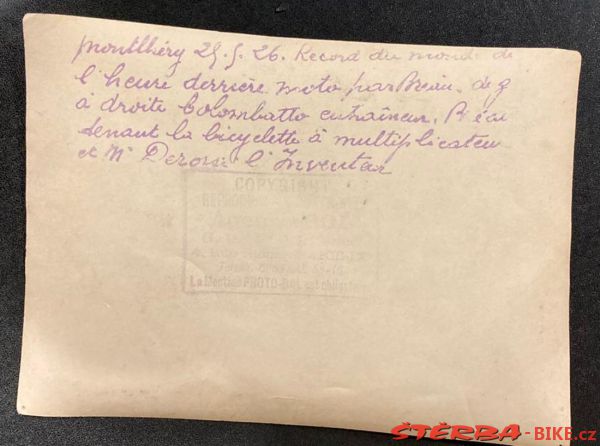 Montlhéry 29.5.26. Record du monde de
l'heure derrière moto par Breau. de g
à droite Colombatto entraîneur. Bréau
tenant la bicyclette à multiplicateur
et Mr Derosie l'Inventeur
COPYRIGHT
La Mention PHOTO-ROL est obligatoire
ŠTĚRBA-BIKE.cz